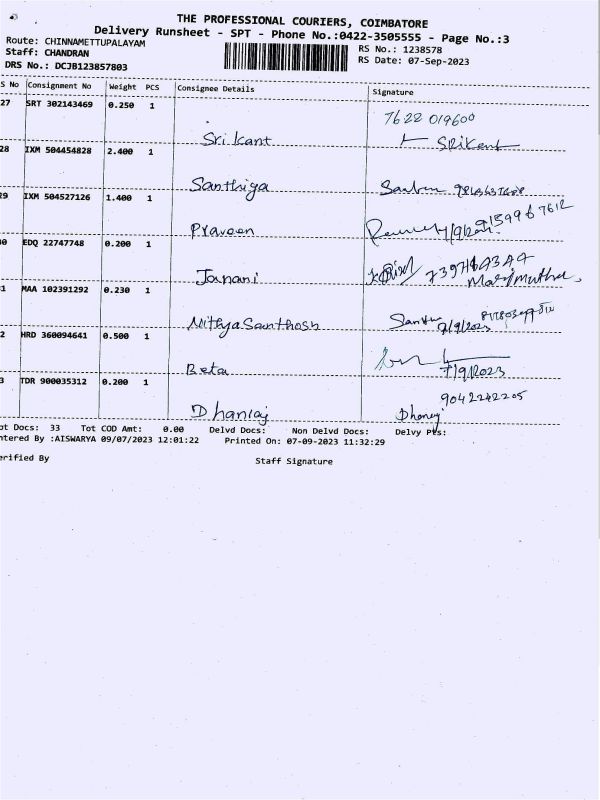 THE PROFESSIONAL COURIERS, COIMBATORE
Delivery Runsheet - SPT - Phone No.:0422-3505555 - Page No.:3
Route: CHINNAMETTUPALAYAM
RS No.: 1238578
Staff: CHANDRAN
RS Date: 07-Sep-2023
DRS No.: DCJB123857803
S No Consignment No Weight PCS Consignee Details Signature
27 SRT 302143469 0.250 1
7622 019600
Srikant SRikant
28 IXM 504454828 2.400 1
Santhiya
29 IXM 504527126 1.400 1
Praveen
0 EDQ 22747748 0.200 1
Janani Marimuthu
1 MAA 102391292 0.230 1
NithyaSanthosh 7/9/2023
2 HRD 360094641 0.500 1
Beta 7/9/2023
3 TDR 900035312 0.200 1
9042242205
Dhanraj
ot Docs: 33 Tot COD Amt: 0.00 Delvd Docs: Non Delvd Docs: Delvy Pts:
ntered By :AISWARYA 09/07/2023 12:01:22 Printed On: 07-09-2023 11:32:29
erified By Staff Signature